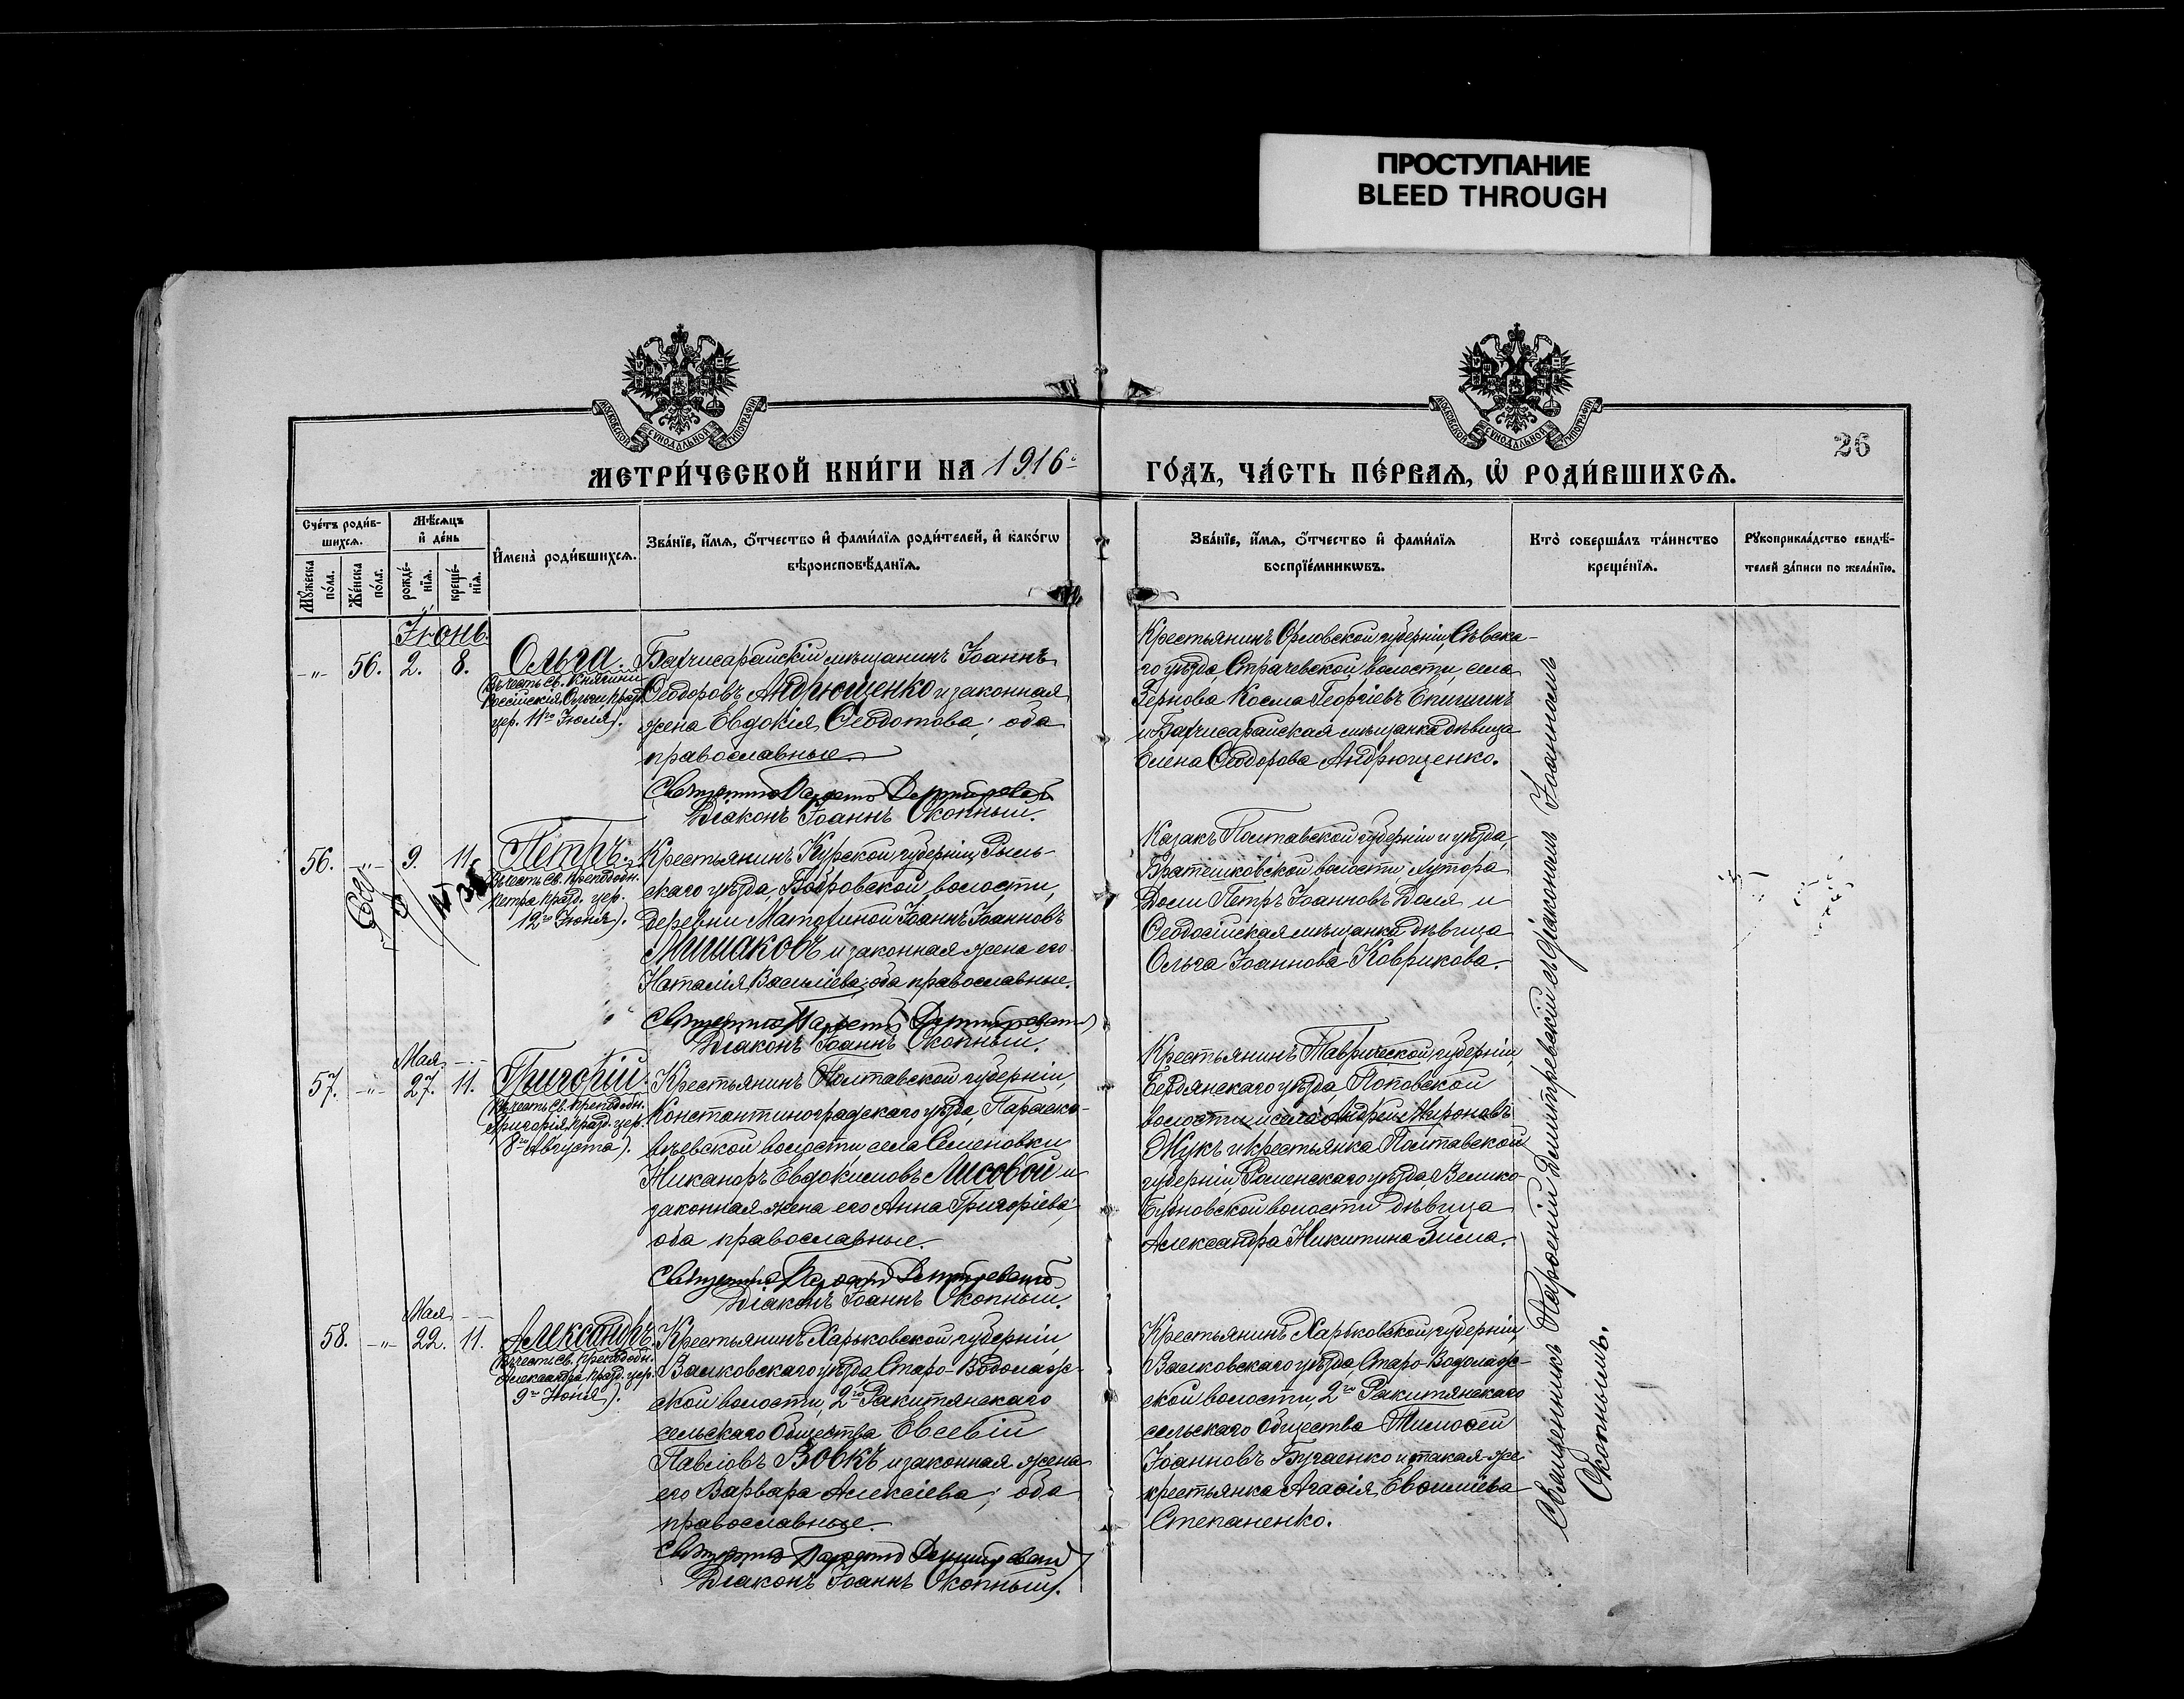 ПРОСТУПАНИЕ
BLEED THROUGH
МОСКОВСКОЙ СѴНОДАЛЬНОЙ ТИПОГРАФІИ
МОСКОВСКОЙ СѴНОДАЛЬНОЙ ТИПОГРАФІИ
26
МЕТРИ́ЧЕСКОЙ КНИ́ГИ НА 1916
ГО́ДЪ, ЧА́СТЬ ПЕ́РВАѦ, Ѡ҆ РОДИ́ВШИХСѦ.
Сче́тъ роди́в-
шихсѧ.
Мꙋ́жеска
по́ла.
Же́нска
по́лꙋ.
Мѣ́сѧцъ
и҆ де́нь
рожде́-
нїѧ.
креще́-
нїѧ.
И҆мена̀ роди́вшихсѧ.
Зва́нїе, и҆́мѧ, ѻ҆́тчество и҆ фами́лїѧ роди́телей, и҆ како́гѡ
вѣроисповѣ́данїѧ.
Зва́нїе, и҆́мѧ, ѻ҆́тчество и҆ фами́лїѧ
воспрїе́мникѡвъ.
Кто̀ соверша́лъ та́инство
креще́нїѧ.
Рꙋкоприкла́дство свидѣ́-
телей за́писи по жела́нїю.
Іюнь.
-„- 56. 2. 8.
Ольга.
(Въ честь Св. Княгини
Россійскія Ольги празд.
цер. 11го Іюля).
Бахчисарайскій мѣщанинъ Іоаннъ
Ѳеодоровъ Андрющенко и законная
жена Евдокія Ѳеодотова; оба
православные.
Священникъ Парѳеній Димитревскій
Діаконъ Іоаннъ Окопный.
Крестьянинъ Орловской губерніи, Сѣвска-
го уѣзда, Страчевской волости, села
Зернова Косма Георгіевъ Епишинъ
и Бахчисарайская мѣщанка дѣвица
Елена Ѳеодорова Андрющенко.
56. -„- 9. 11.
Петръ.
(Въ честь Св. Преподобн.
Петра празд. цер.
12го Іюня).
Крестьянинъ Курской губерніи, Рыль-
скаго уѣзда, Бобровской волости,
деревни Матохиной Іоаннъ Іоанновъ
Мишаковъ и законная жена его
Наталія Васильева; оба православные.
Священникъ Парѳеній Димитревскій
Діаконъ Іоаннъ Окопный.
Казакъ Полтавской губерніи и уѣзда,
Братешковской волости, хутора
Доли Петръ Іоанновъ Доля и
Ѳеодосійская мѣщанка дѣвица
Ольга Іоаннова Коврикова.
Мая
57. -„- 27. 11.
Григорій.
(Въ честь Св. Преподобн.
Григорія празд. цер.
8го Августа).
Крестьянинъ Полтавской губерніи,
Константиноградскаго уѣзда, Параско-
віевской волости, села Семеновки
Никаноръ Евдокимовъ Лисовой и
законная жена его Анна Григоріева;
оба православные.
Священникъ Парѳеній Димитревскій
Діаконъ Іоаннъ Окопный.
Крестьянинъ Таврической губерніи,
Бердянскаго уѣзда, Поповской
волости и села Андрей Мироновъ
Жукъ и крестьянка Полтавской
губерніи, Роменскаго уѣзда, Велико-
Бубновской волости дѣвица
Александра Никитина Зима.
Мая
58. -„- 22. 11.
Александръ.
(Въ честь Св. Преподобн.
Александра празд. цер.
9го Іюня).
Крестьянинъ Харьковской губерніи,
Валковскаго уѣзда, Старо-Водолаж-
ской волости, 2го Ракитянскаго
сельскаго Общества Евсевій
Павловъ Воскъ и законная жена
его Варвара Алексіева; оба
православные.
Священникъ Парѳеній Димитревскій
Діаконъ Іоаннъ Окопный.
Крестьянинъ Харьковской губерніи,
Валковскаго уѣзда, Старо-Водолаж-
ской волости, 2го Ракитянскаго
сельскаго Общества Тимоѳей
Іоанновъ Бугаенко и такая-же
крестьянка Агаѳія Евѳиміева
Степаненко.
Священникъ Парѳеній Димитревскій съ діакономъ Іоанномъ
Окопнымъ.